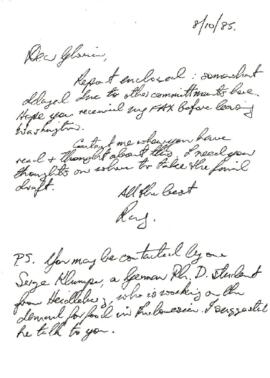 8/10/85.
Dear Gloria,
Report enclosed : somewhat
delayed due to other committments here.
Hope you received my FAX before leaving
Washington.
Contact me when you have
read & thought about this, I need your
thoughts on when to take the final
draft.
All the best
Ray.
P.S. You may be contacted by one
Serge Klumpe, a German Ph. D. student
from Heidelberg, who is working on the
demand for food in Indonesia. I suggested
he talk to you.